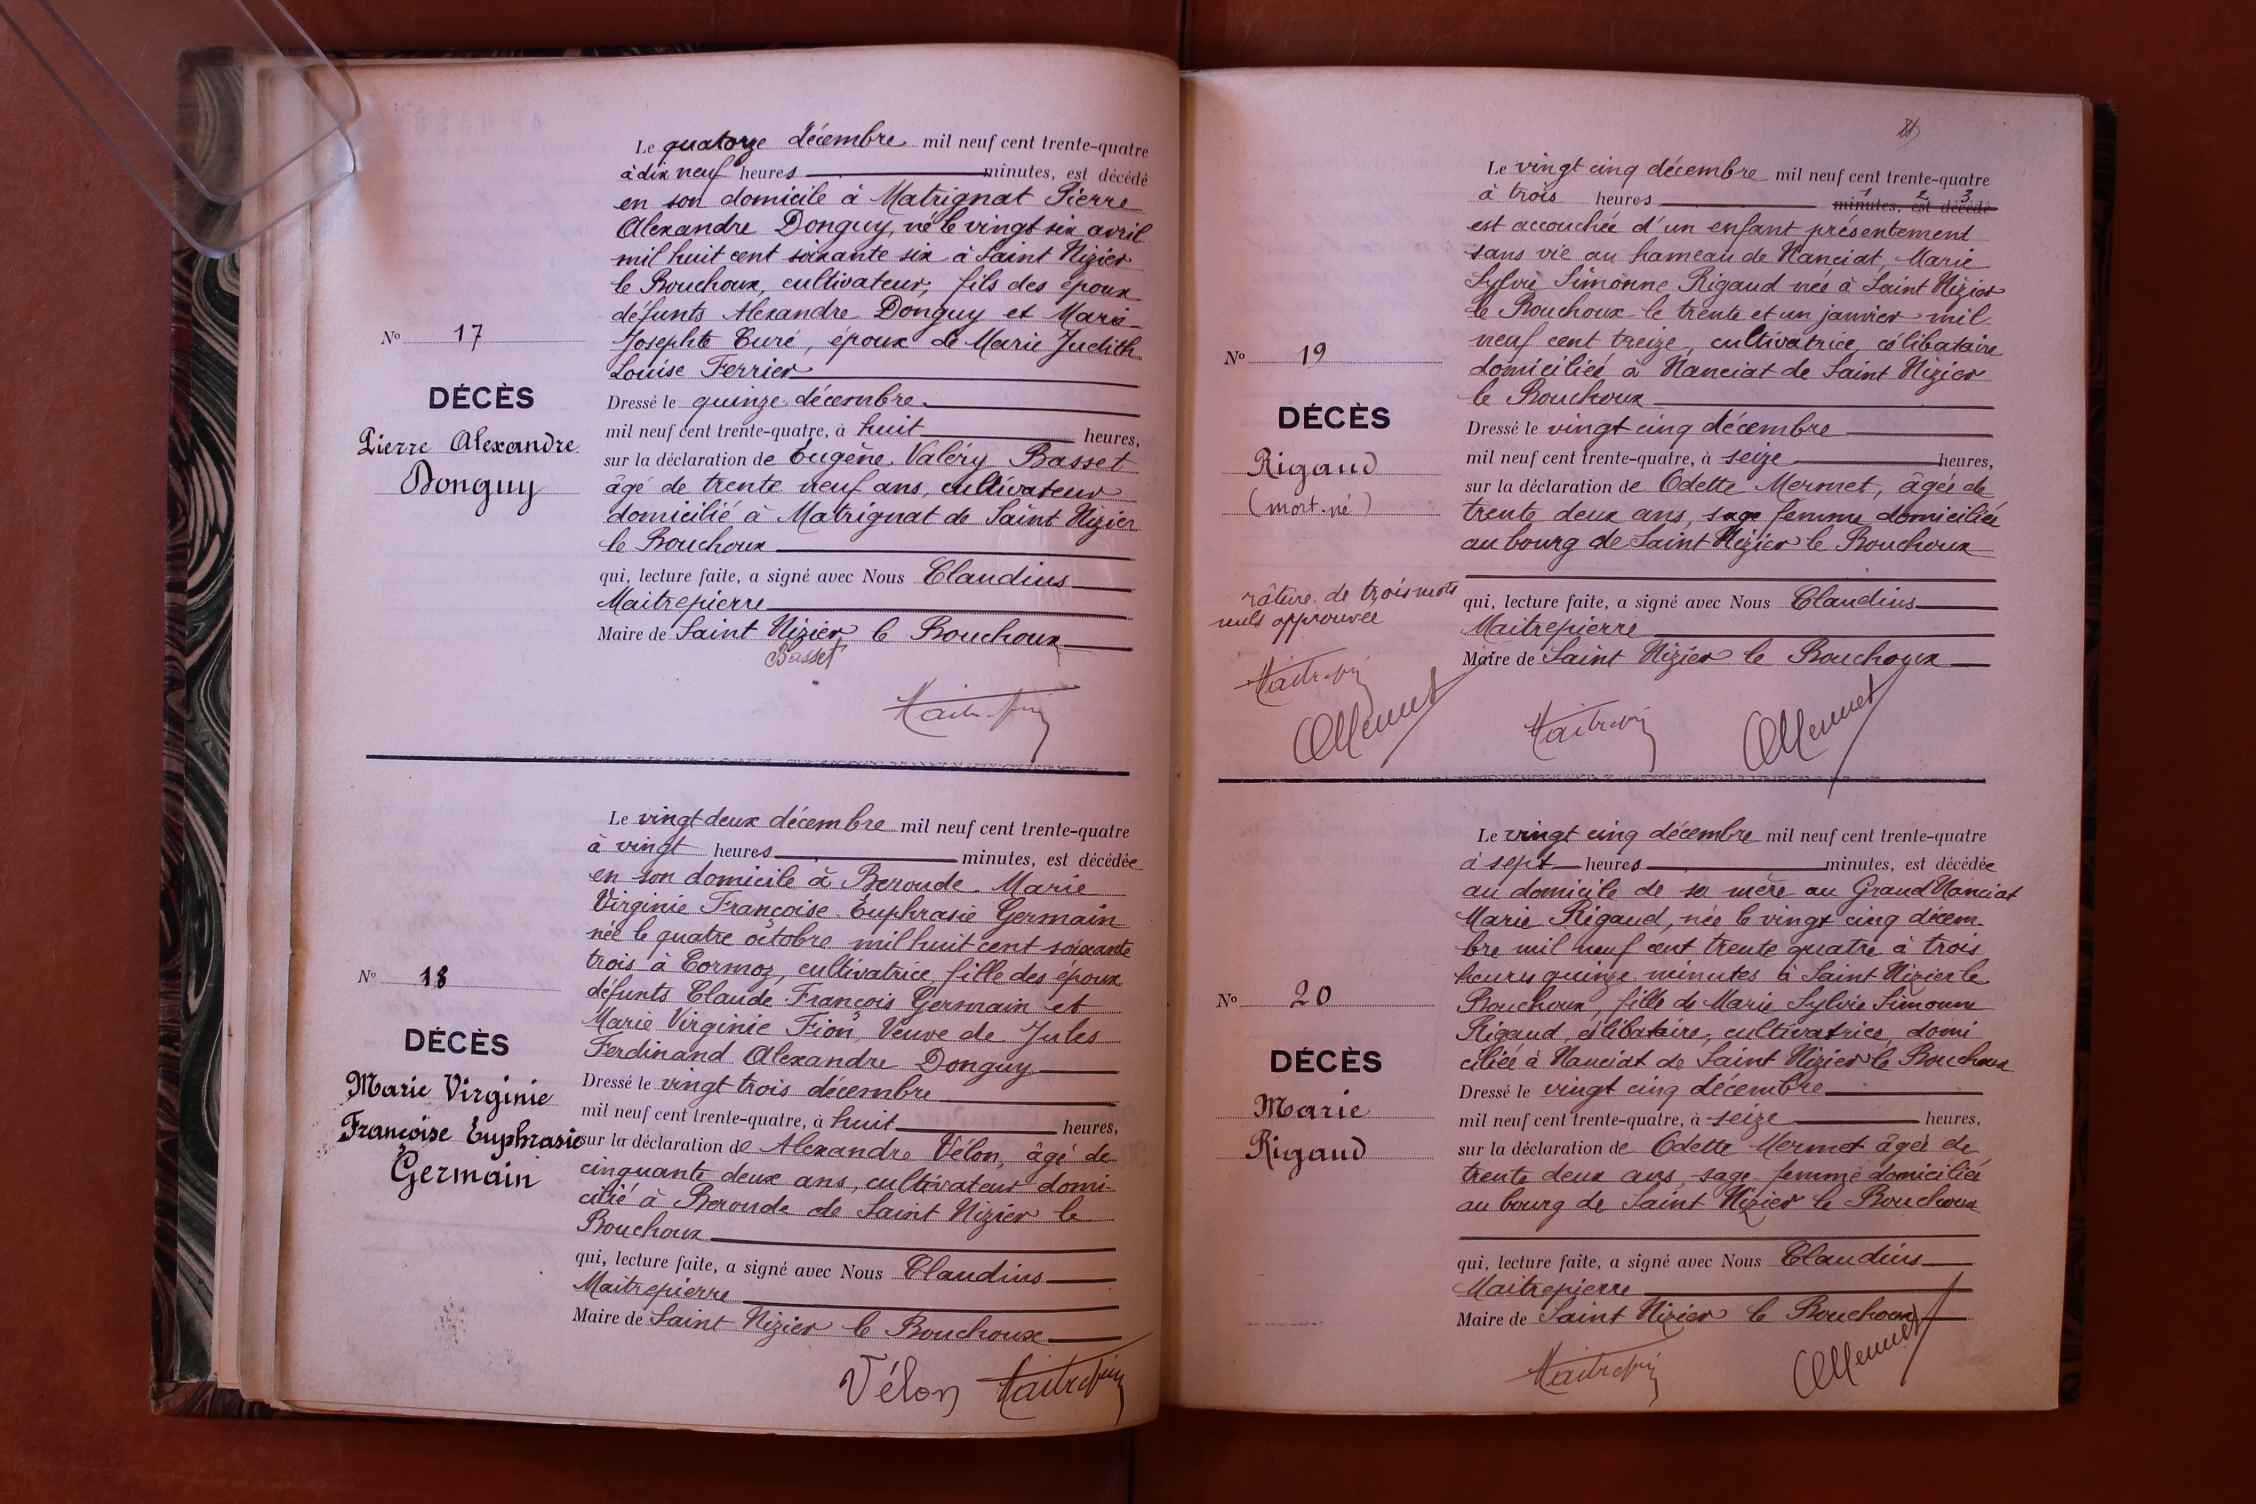 Le quatorze décembre mil neuf cent trente-quatre
à dix neuf heures minutes, est décédé
en son domicile à Matrignat Pierre
Alexandre Donguy, né le vingt six avril
mil huit cent soixante six à Saint Nizier
le Bouchoux, cultivateur, fils des époux
défunts Alexandre Donguy et Marie
Josephte Curé, époux de Marie Judith
Louise Ferrier
Dressé le quinze décembre
mil neuf cent trente-quatre, à huit heures,
sur la déclaration de Eugène Valéry Basset
âgé de trente neuf ans, cultivateur
domicilié à Matrignat de Saint Nizier
le Bouchoux
qui, lecture faite, a signé avec Nous Claudius
Maitrepierre
Maire de Saint Nizier le Bouchoux
Basset
Maitrepierre
N° 17
DÉCÈS
Pierre Alexandre
Donguy
Le vingt deux décembre mil neuf cent trente-quatre
à vingt heures minutes, est décédée
en son domicile à Beroude Marie
Virginie Françoise Euphrasie Germain
née le quatre octobre mil huit cent soixante
trois à Cormoz, cultivatrice, fille des époux
défunts Claude François Germain et
Marie Virginie Fion, Veuve de Jules
Ferdinand Alexandre Donguy
Dressé le vingt trois décembre
mil neuf cent trente-quatre, à huit heures,
sur la déclaration de Alexandre Vélon, âgé de
cinquante deux ans, cultivateur domi
cilié à Beroude de Saint Nizier le
Bouchoux
qui, lecture faite, a signé avec Nous Claudius
Maitrepierre
Maire de Saint Nizier le Bouchoux
Vélon Maitrepierre
N° 18
DÉCÈS
Marie Virginie
Françoise Euphrasie
Germain
Le vingt cinq décembre mil neuf cent trente-quatre
à trois heures 1 2 3
minutes, est décédé
est accouchée d'un enfant présentement
sans vie au hameau de Nanciat, Marie
Sylvie Simonne Rigaud née à Saint Nizier
le Bouchoux le trente et un janvier mil
neuf cent treize, cultivatrice, célibataire
domiciliée à Nanciat de Saint Nizier
le Bouchoux
Dressé le vingt cinq décembre
mil neuf cent trente-quatre, à seize heures,
sur la déclaration de Odette Mermet, âgée de
trente deux ans, sage femme domiciliée
au bourg de Saint Nizier le Bouchoux
qui, lecture faite, a signé avec Nous Claudius
Maitrepierre
Maire de Saint Nizier le Bouchoux
Maitrepierre OMermet
N° 19
DÉCÈS
Rigaud
(mort-né)
râture de trois mots
nuls approuvée
Maitrepierre
OMermet
Le vingt cinq décembre mil neuf cent trente-quatre
à sept heures minutes, est décédée
au domicile de sa mère au Grand Nanciat
Marie Rigaud, née le vingt cinq décem-
bre mil neuf cent trente quatre à trois
heures quinze minutes à Saint Nizier le
Bouchoux, fille de Marie Sylvie Simonne
Rigaud, célibataire, cultivatrice, domi
ciliée à Nanciat de Saint Nizier le Bouchoux
Dressé le vingt cinq décembre
mil neuf cent trente-quatre, à seize heures,
sur la déclaration de Odette Mermet âgée de
trente deux ans, sage femme domiciliée
au bourg de Saint Nizier le Bouchoux
qui, lecture faite, a signé avec Nous Claudius
Maitrepierre
Maire de Saint Nizier le Bouchoux
Maitrepierre OMermet
N° 20
DÉCÈS
Marie
Rigaud